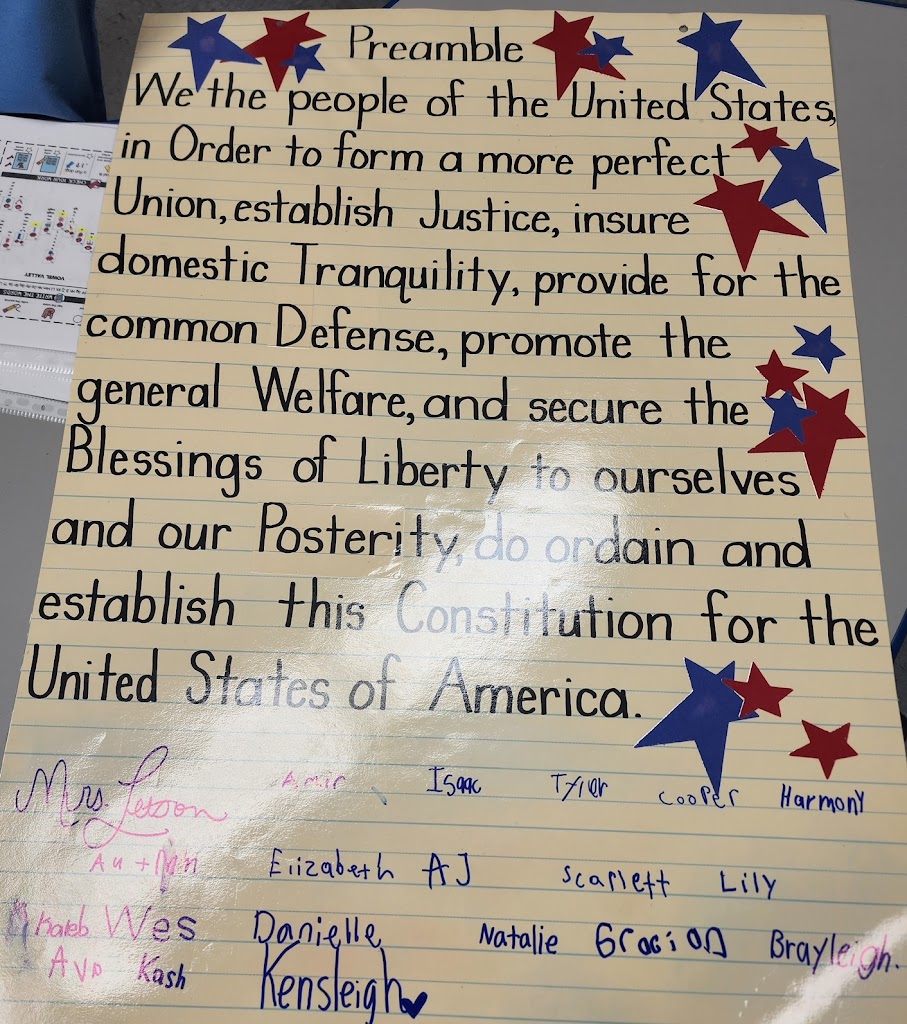 Preamble
We the people of the United States,
in Order to form a more perfect
Union, establish Justice, insure
domestic Tranquility, provide for the
common Defense, promote the
general Welfare, and secure the
Blessings of Liberty to ourselves
and our Posterity, do ordain and
establish this Constitution for the
United States of America.
Mrs. Amir Isaac Tyler Cooper Harmony
Elizabeth AJ Scarlett Lily
Kaleb Wes Danielle Natalie Bracion Brayleigh.
Ava Kash Kensleigh
VOWEL VALLEY
WRITE THE WORDS